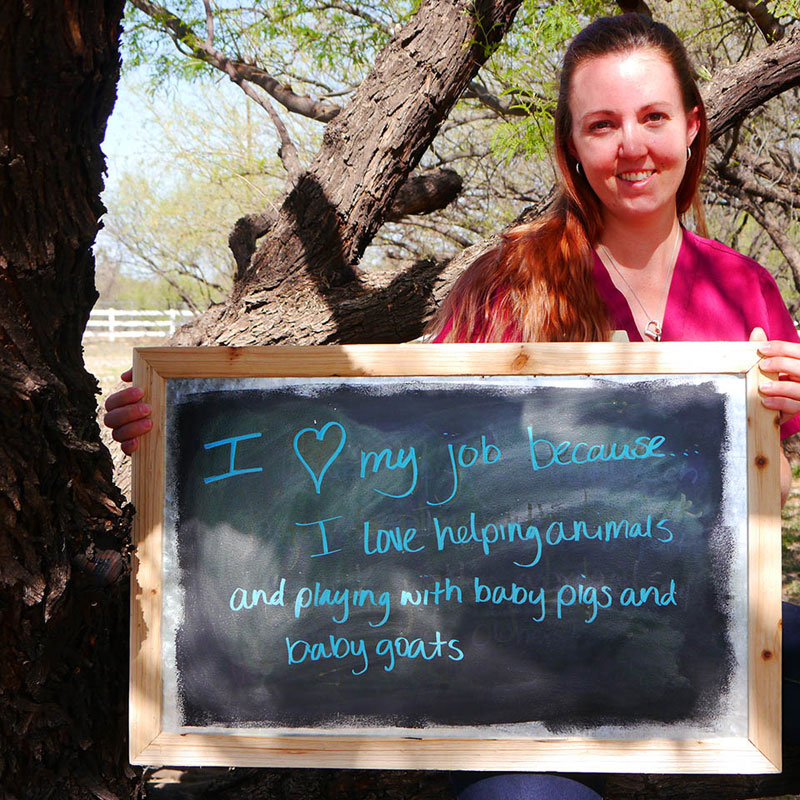 I ♡ my job because...
I love helping animals
and playing with baby pigs and
baby goats